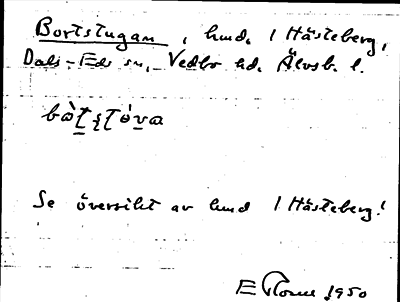 Bortstugan, hmd. i Hästeberg,
Dals-Eds sn, Vedbo hd. Älvsb. l.
Se översikt av hmd i Hästeberg!
1950